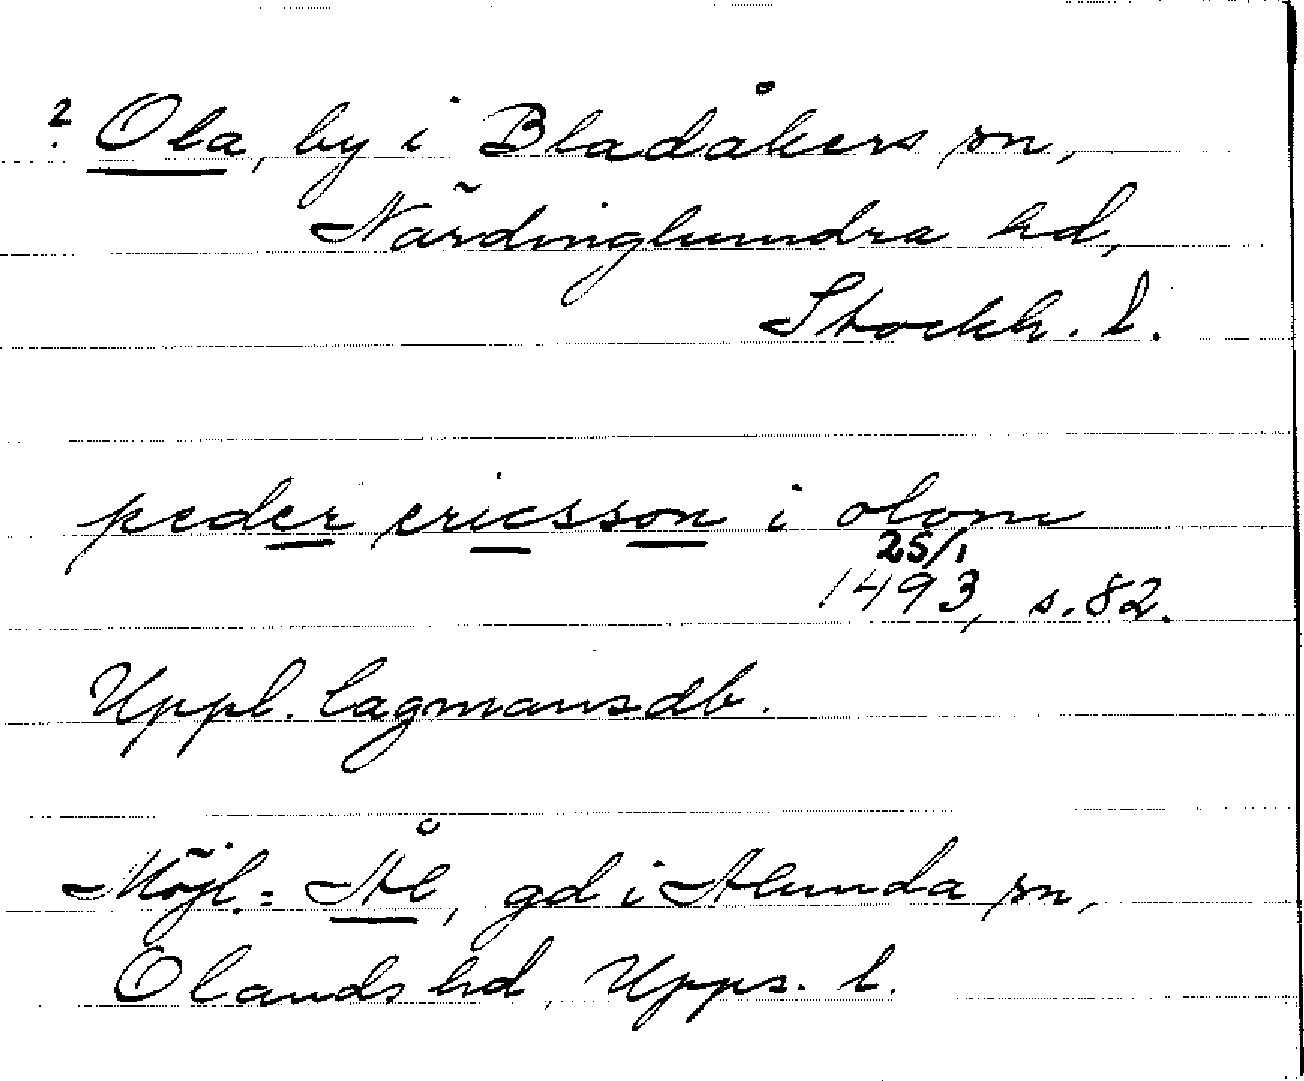 ? Ola, by i Bladåkers sn,
Närdinghundra hd,
Stockh. l.
peder ericsson i olom
25/1
1493, s. 82.
Uppl. lagmansdb.
Möjl. = Ål, gd i Alunda sn,
Olands hd, Upps. l.